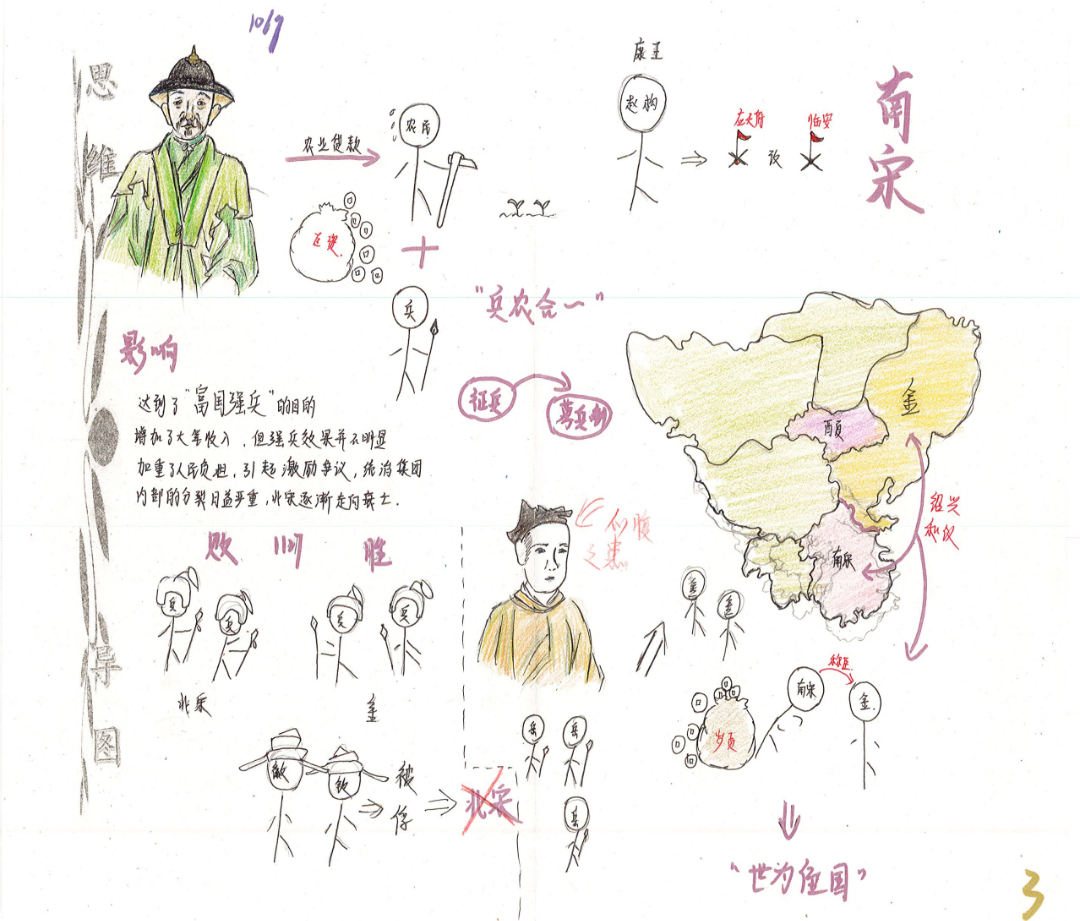 1069
思维导图
农业贷款
农民
兵
"兵农合一"
征兵
募兵制
影响
达到了"富国强兵"的目的
增加了大笔收入，但强兵效果并不明显
加重了人民负担，引起激励争议，统治集团
内部的分裂日益严重，北宋逐渐走向衰亡.
康王
赵构
应天府
改
临安
南宋
金
西夏
南宋
绍兴
和议
败
1127
胜
兵
兵
兵
兵
北宋
金
徽
钦
被
俘
北宋
心腹
之患
岳
岳
岳
金
金
南宋
称臣
金
岁贡
"世为臣国"
3